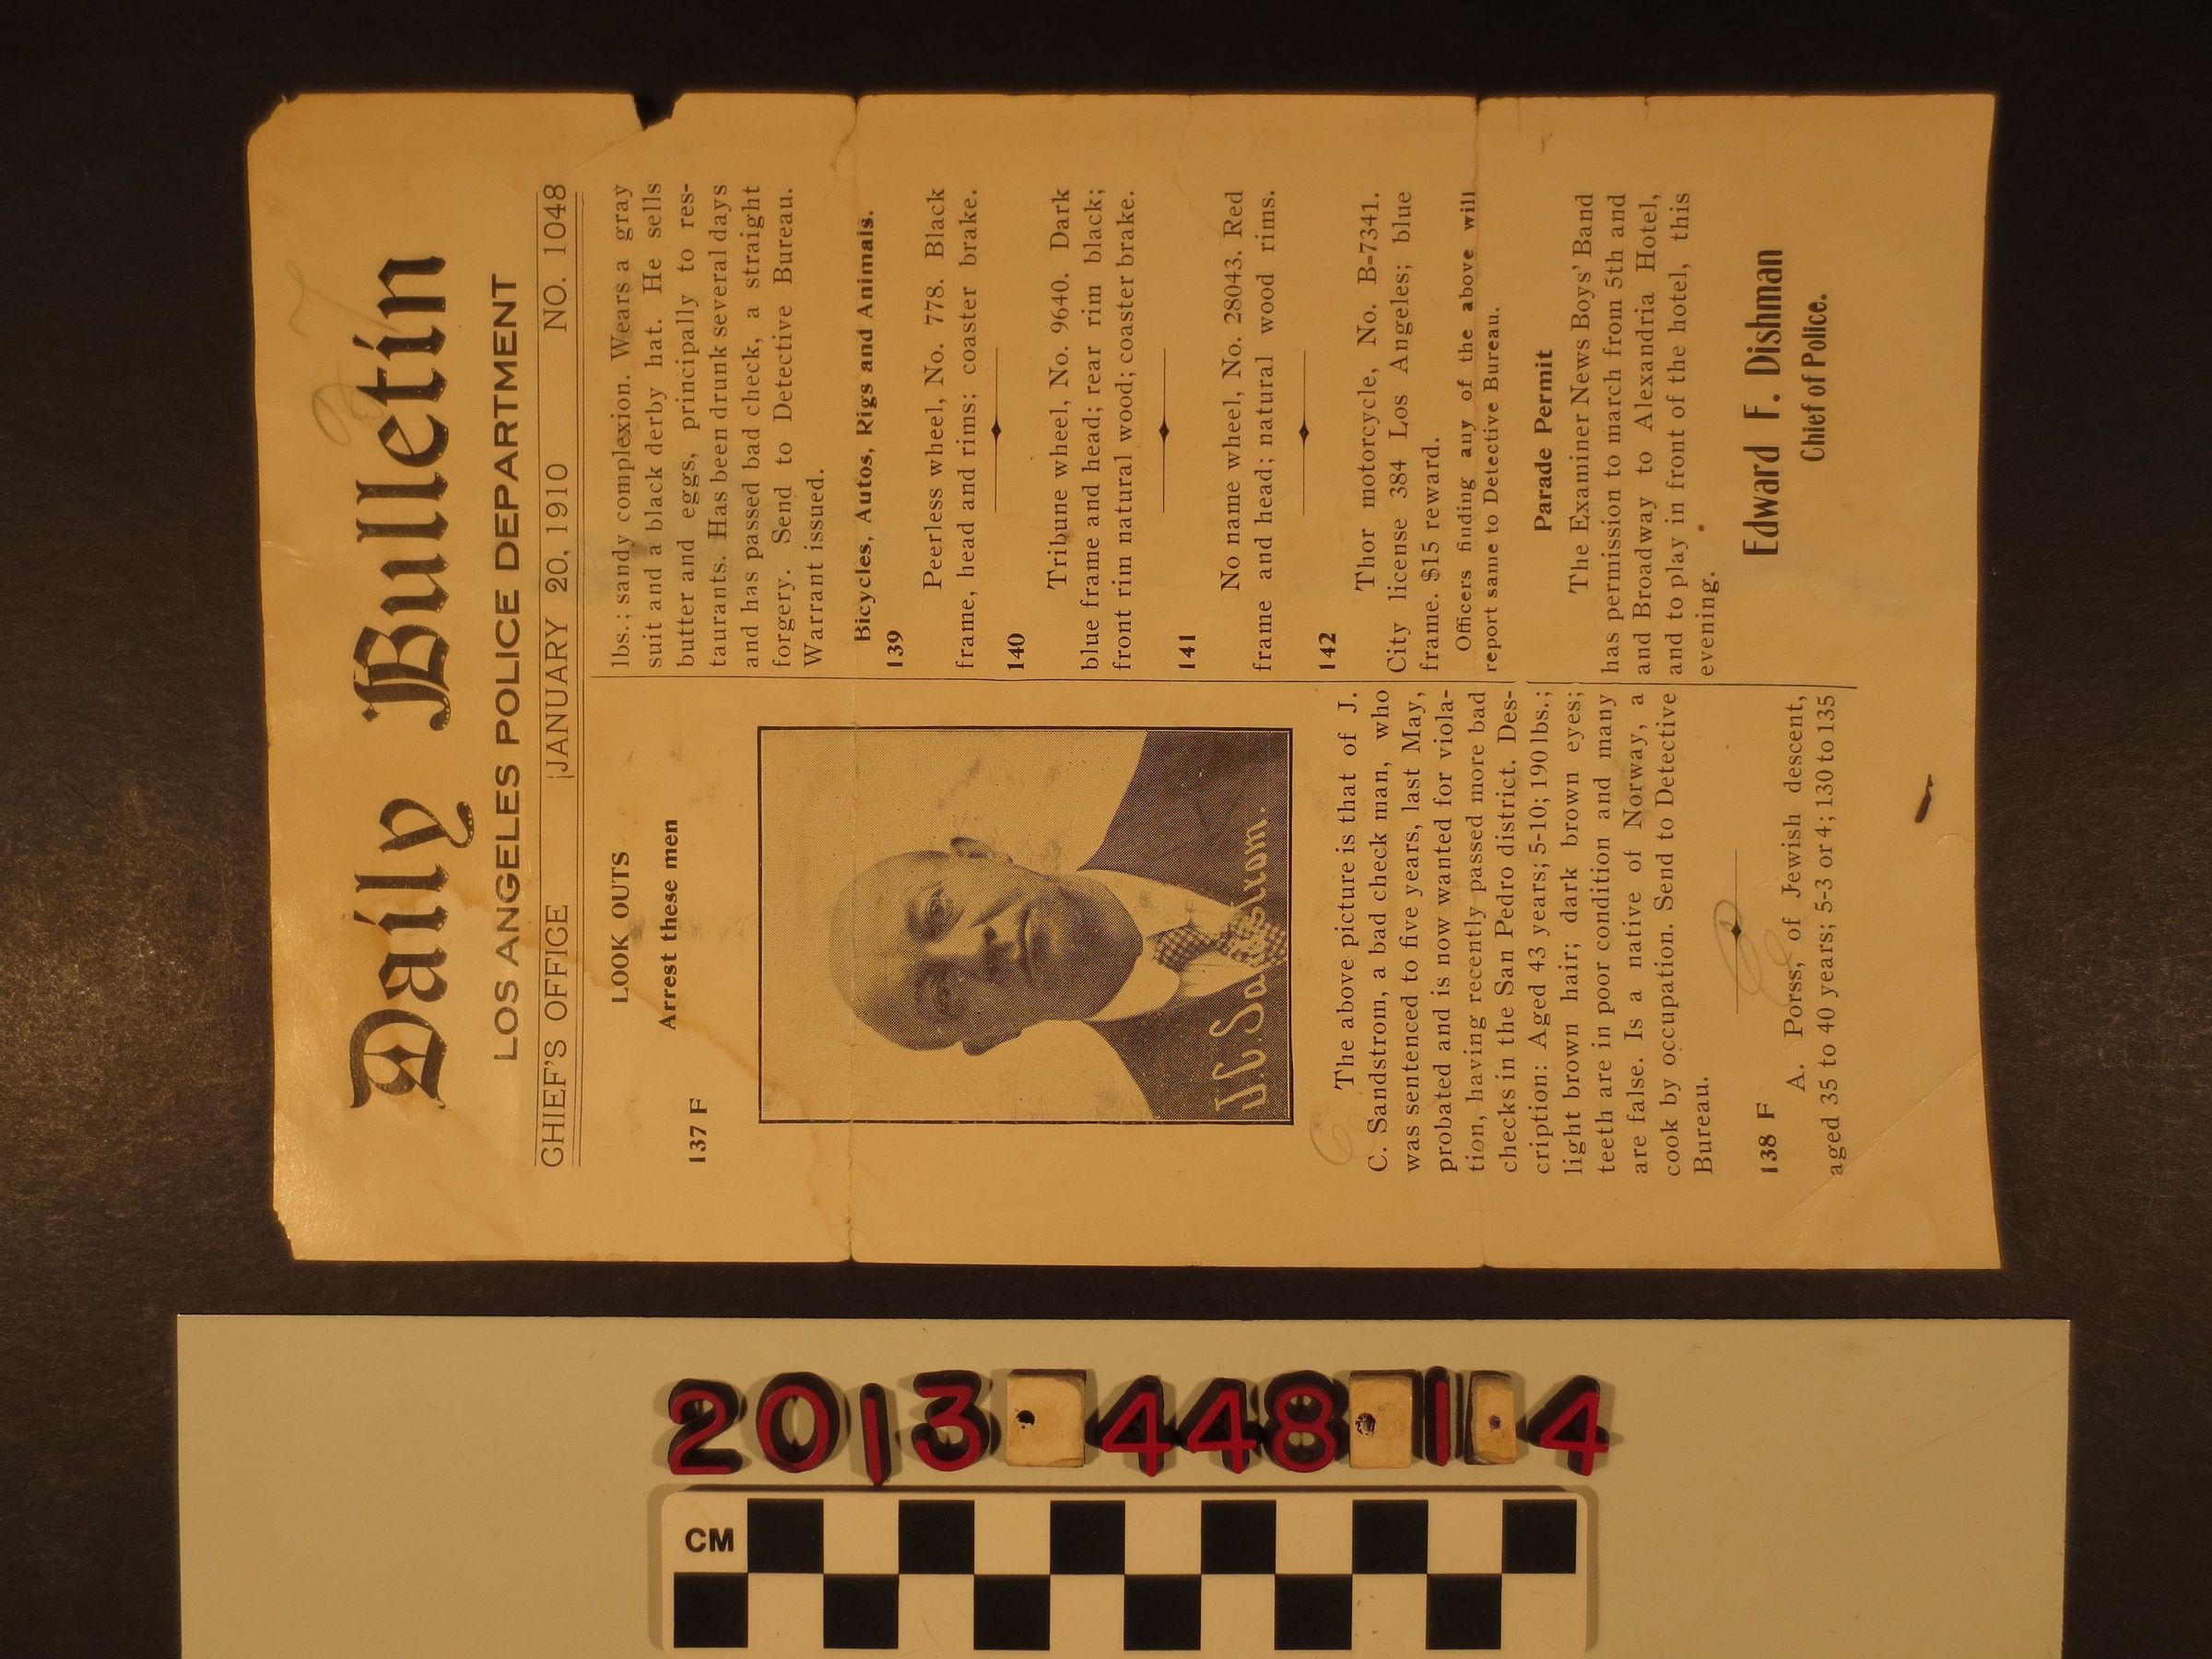 Daily Bulletin
LOS ANGELES POLICE DEPARTMENT
CHIEF'S OFFICE JANUARY 20, 1910 NO. 1048
LOOK OUTS
Arrest these men
137 F
J.C. Sandstrom.
The above picture is that of J.
C. Sandstrom, a bad check man, who
was sentenced to five years, last May,
probated and is now wanted for viola-
tion, having recently passed more bad
checks in the San Pedro district. Des-
cription: Aged 43 years; 5-10; 190 lbs.;
light brown hair; dark brown eyes;
teeth are in poor condition and many
are false. Is a native of Norway, a
cook by occupation. Send to Detective
Bureau.
138 F
A. Porss, of Jewish descent,
aged 35 to 40 years; 5-3 or 4; 130 to 135
lbs.; sandy complexion. Wears a gray
suit and a black derby hat. He sells
butter and eggs, principally to res-
taurants. Has been drunk several days
and has passed bad check, a straight
forgery. Send to Detective Bureau.
Warrant issued.
Bicycles, Autos, Rigs and Animals.
139
Peerless wheel, No. 778. Black
frame, head and rims; coaster brake.
140
Tribune wheel, No. 9640. Dark
blue frame and head; rear rim black;
front rim natural wood; coaster brake.
141
No name wheel, No. 28043. Red
frame and head; natural wood rims.
142
Thor motorcycle, No. B-7341.
City license 384 Los Angeles; blue
frame. $15 reward.
Officers finding any of the above will
report same to Detective Bureau.
Parade Permit
The Examiner News Boys' Band
has permission to march from 5th and
and Broadway to Alexandria Hotel,
and to play in front of the hotel, this
evening.
Edward F. Dishman
Chief of Police.
2013.448.1.4
CM